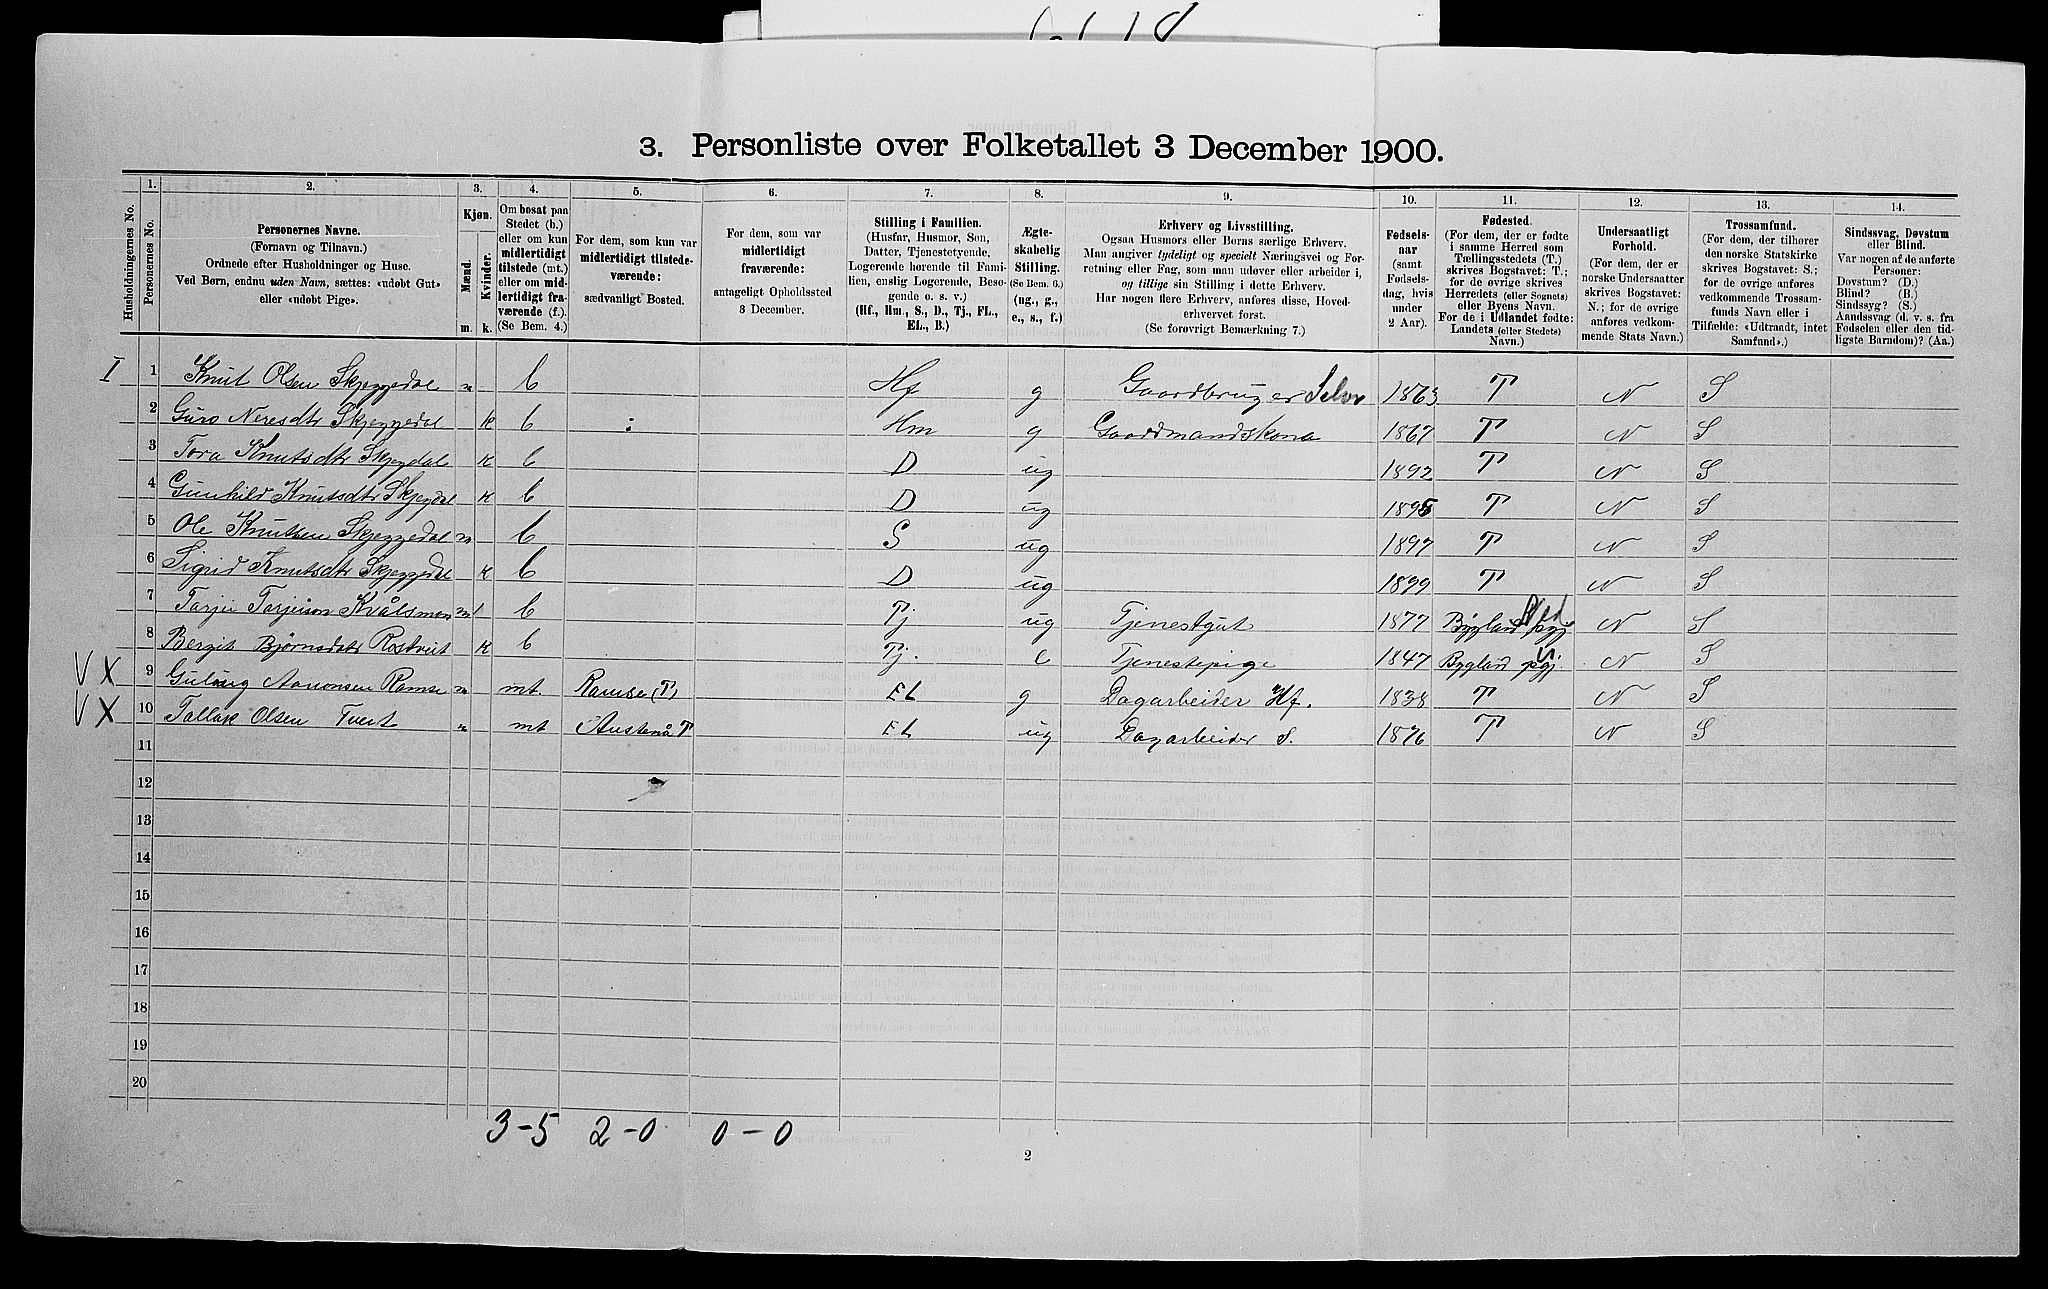 3. Personliste over Folketallet 3 December 1900.
Husholdningernes No.
1.
Personernes No.
2.
Personernes Navne.
(Fornavn og Tilnavn.)
Ordnede efter Husholdninger og Huse.
Ved Børn, endnu uden Navn, sættes: «udøbt Gut»
eller «udøbt Pige».
3.
Kjøn.
Mænd.
Kvinder.
m.
k.
4.
Om bosat paa
Stedet (b.)
eller om kun
midlertidigt
tilstede (mt.)
eller om mid-
lertidigt fra-
værende (f.).
(Se Bem. 4.)
5.
For dem, som kun var
midlertidigt tilstede-
værende:
sædvanligt Bosted.
6.
For dem, som var
midlertidigt
fraværende:
antageligt Opholdssted
3 December.
7.
Stilling i Familien.
(Husfar, Husmor, Søn,
Datter, Tjenestetyende,
Logerende hørende til Fami-
lien, enslig Logerende, Besø-
gende o. s. v.)
(Hf., Hm., S., D., Tj., FL.,
EL., B.)
8.
Ægte-
skabelig
Stilling.
(Se Bem. 6.)
(ug., g.,
e., s., f.)
9.
Erhverv og Livsstilling.
Ogsaa Husmors eller Børns særlige Erhverv.
Man angiver tydeligt og specielt Næringsvei og For-
retning eller Fag, som man udøver eller arbeider i,
og tillige sin Stilling i dette Erhverv.
Har nogen flere Erhverv, anføres disse, Hoved-
erhvervet først.
(Se forøvrigt Bemærkning 7.)
10.
Fødsels-
aar
(samt
Fødsels-
dag, hvis
under
2 Aar).
11.
Fødested.
(For dem, der er fødte
i samme Herred som
Tællingsstedets (T.)
skrives Bogstavet: T.;
for de øvrige skrives
Herredets (eller Sognets)
eller Byens Navn.
For de i Udlandet fødte:
Landets (eller Stedets)
Navn.)
12.
Undersaatligt
Forhold.
(For dem, der er
norske Undersaatter
skrives Bogstavet:
N.; for de øvrige
anføres vedkom-
mende Stats Navn.)
13.
Trossamfund.
(For dem, der tilhører
den norske Statskirke
skrives Bogstavet: S.;
for de øvrige anføres
vedkommende Trossam-
funds Navn eller i
Tilfælde: «Udtraadt, intet
Samfund».)
14.
Sindssvag, Døvstum
eller Blind.
Var nogen af de anførte
Personer:
Døvstum? (D.)
Blind? (B.)
Sindssyg? (S.)
Aandssvag (d. v. s. fra
Fødselen eller den tid-
ligste Barndom)? (Aa.)
I 1 Knut Olsen Skjeggedal m b Hf g Gaardbruger Selv 1863 T N S
2 Guro Neresdtr Skjeggedal k b Hm g Gaardmandskone 1867 T N S
3 Tora Knutsdtr Skjegdal k b D ug 1892 T N S
4 Gunhild Knutsdtr Skjegdal k b D ug 1895 T N S
5 Ole Knutsen Skjeggedal m b S ug 1897 T N S
6 Sigrid Knutsdtr Skjeggedal k b D ug 1899 T N S
7 Tarjei Tarjeison Kvålsmon m b Tj ug Tjenestgut 1877 Bygland pgj N S
8 Bergit Bjørnsdatr Rostveit k b Tj. e Tjenestepige 1847 Bygland pgj. N S
V X 9 Aanonsen Ramse m mt Ramse (T) EL g Dagarbeider Hf. 1838 T N S
V X 10 Tallak Olsen Tveit m mt Austenå T EL ug Dagarbeider S. 1876 T N S
11
12
13
14
15
16
17
18
19
20
3-5 2-0 0-0
2